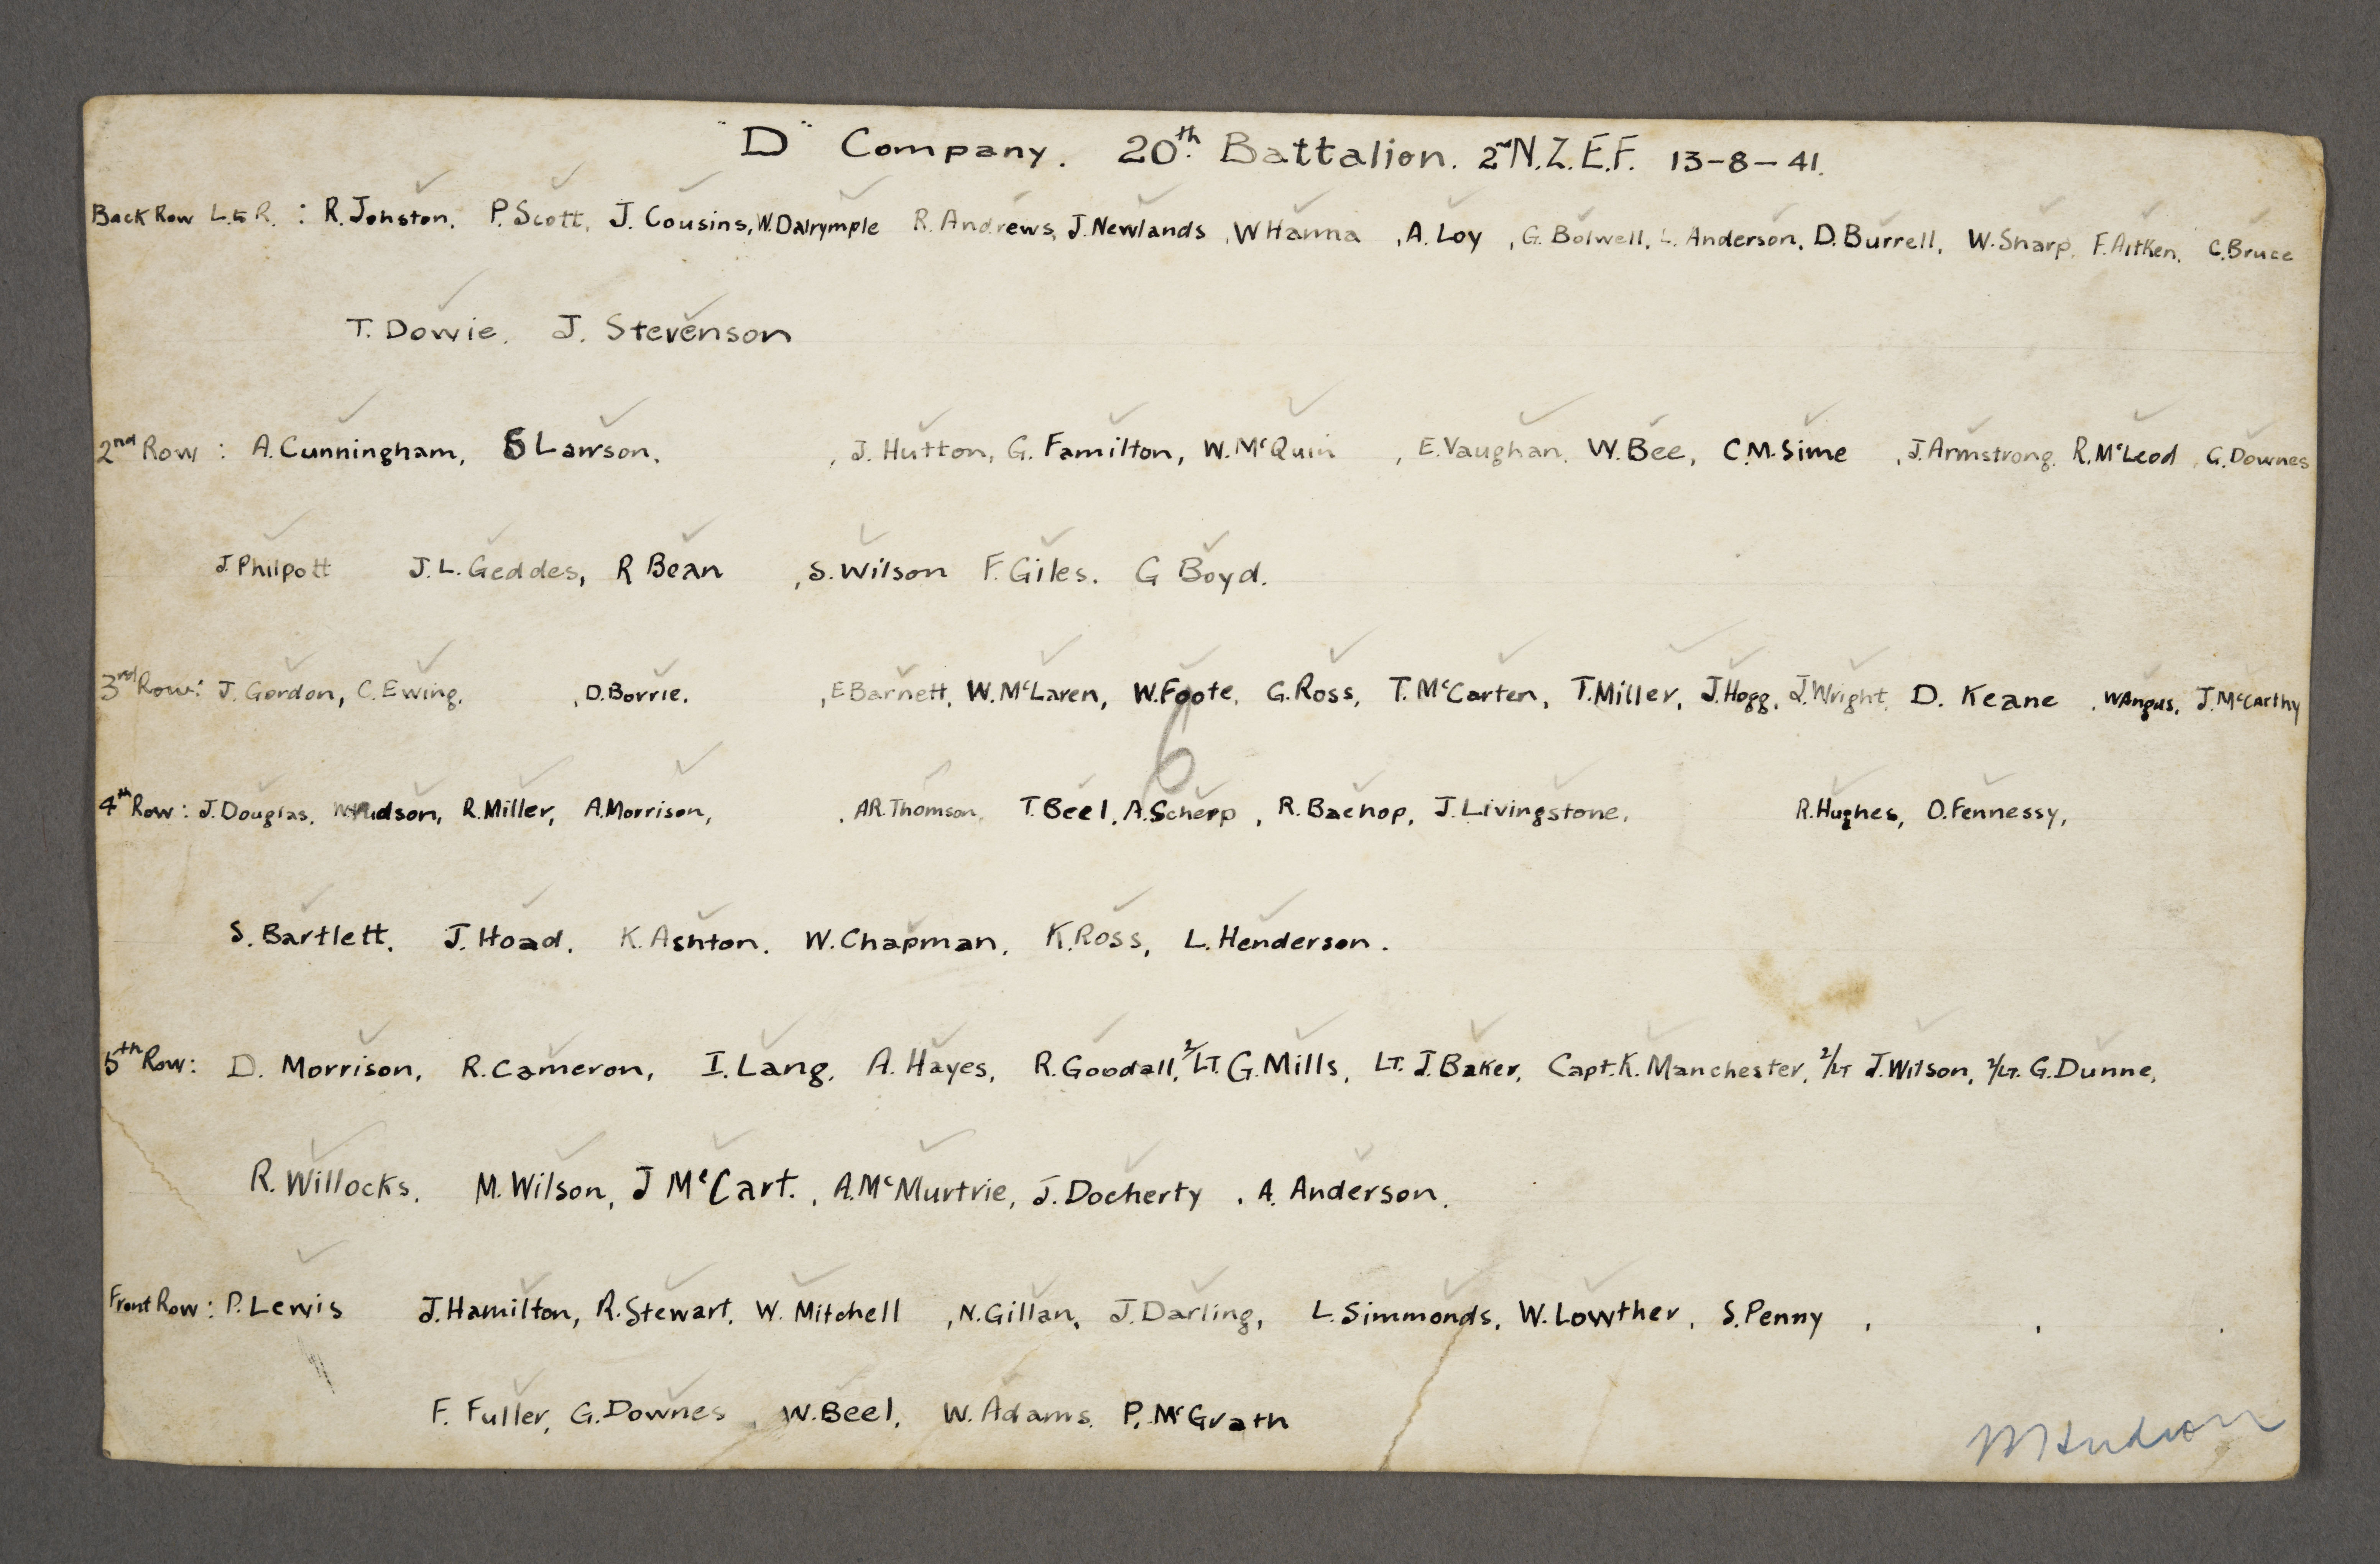 "D" Company. 20th Battalion. 2nd N.Z.E.F. 13-8-41.
Back Row L. to R. : R. Johston. P. Scott. J. Cousins, W. Dalrymple R. Andrews, J. Newlands , W Hanna , A. Loy , G. Bolwell, L. Anderson, D. Burrell, W. Sharp. F. Aitken. C. Bruce
T. Dowie. J. Stevenson
2nd Row : A. Cunningham, S Lawson. , J. Hutton, G. Familton, W. McQuin , E. Vaughan. W. Bee, C.M. Sime , J. Armstrong. R. McLeod , G. Downes
J. Philpott J.L. Geddes, R Bean , S. Wilson F. Giles. G Boyd.
3rd Row: J. Gordon, C. Ewing. , D. Borrie. , E Barnett, W. McLaren, W. Foote, G. Ross, T. McCarten, T. Miller, J. Hogg, J. Wright, D. Keane , W Angus, J. McCarthy
6
4th Row: J. Douglas. W Hudson, R. Miller, A. Morrison, , A R. Thomson. T. Beel, A. Scherp , R. Bachop, J. Livingstone. R. Hughes, O. Fennessy,
S. Bartlett. J. Hoad. K. Ashton. W. Chapman. K. Ross, L. Henderson.
5th Row: D. Morrison, R. Cameron, I. Lang. A. Hayes, R. Goodall, 2/Lt. G. Mills, Lt. J. Baker, Capt. K. Manchester, 2/Lt J. Wilson, 2/Lt. G. Dunne,
R. Willocks. M. Wilson, J McCart. , A. McMurtrie, J. Docherty , A. Anderson.
Front Row: P. Lewis J. Hamilton, R. Stewart. W. Mitchell , N. Gillan, J. Darling, L. Simmonds, W. Lowther, S. Penny , , .
F. Fuller, G. Downes , W. Beel, W. Adams. P. McGrath
M Hudson